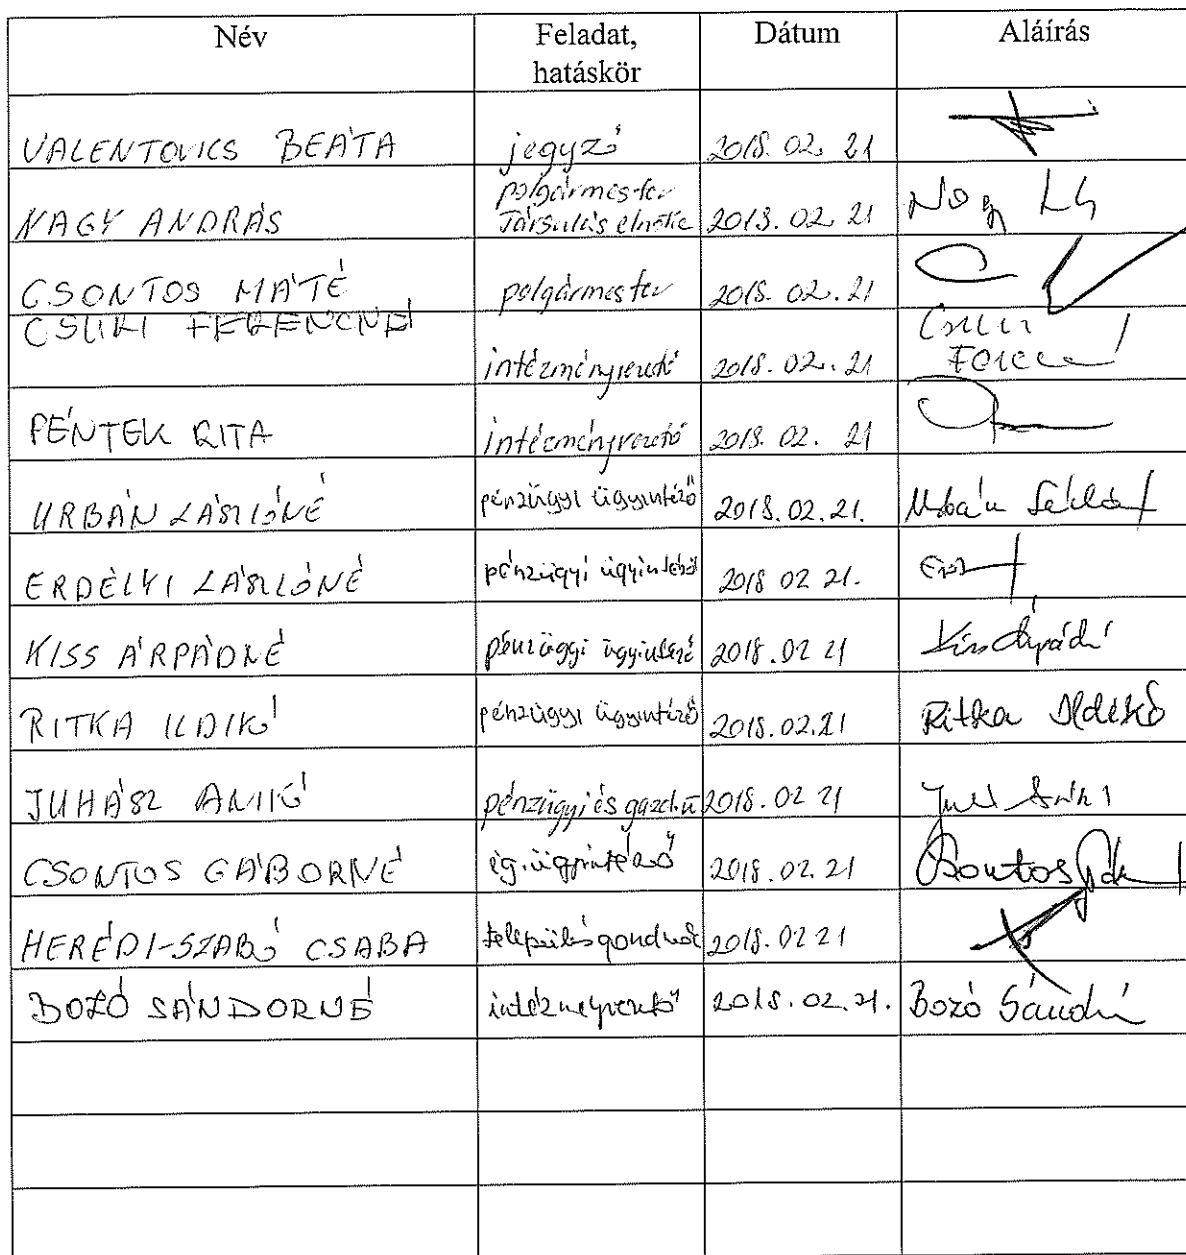 Név Feladat, Dátum Aláírás
hatáskör
VALENTOVICS BEÁTA jegyző 2018. 02. 21
polgármester
NAGY ANDRÁS Társulás elnöke 2018. 02. 21
CSONTOS MÁTÉ polgármester 2018. 02. 21
CSUKI FERENCNÉ
intézményvezető 2018. 02. 21
PÉNTEK RITA intézményvezető 2018. 02. 21
URBÁN LÁSZLÓNÉ pénzügyi ügyintéző 2018. 02. 21.
ERDÉLYI LÁSZLÓNÉ pénzügyi ügyintéző 2018 02 21.
KISS ÁRPÁDNÉ pénzügyi ügyintéző 2018. 02 21 Kiss Árpádné
RITKA ILDIKÓ pénzügyi ügyintéző 2018. 02. 21 Ritka Ildikó
JUHÁSZ ANIKÓ pénzügyi és gazd.ü 2018. 02 21
CSONTOS GÁBORNÉ ig. ügyintéző 2018. 02. 21 Csontos
HERÉDI-SZABÓ CSABA településgondnok 2018. 02 21
BOZÓ SÁNDORNÉ intézményvezető 2018. 02. 21. Bozó Sándorné